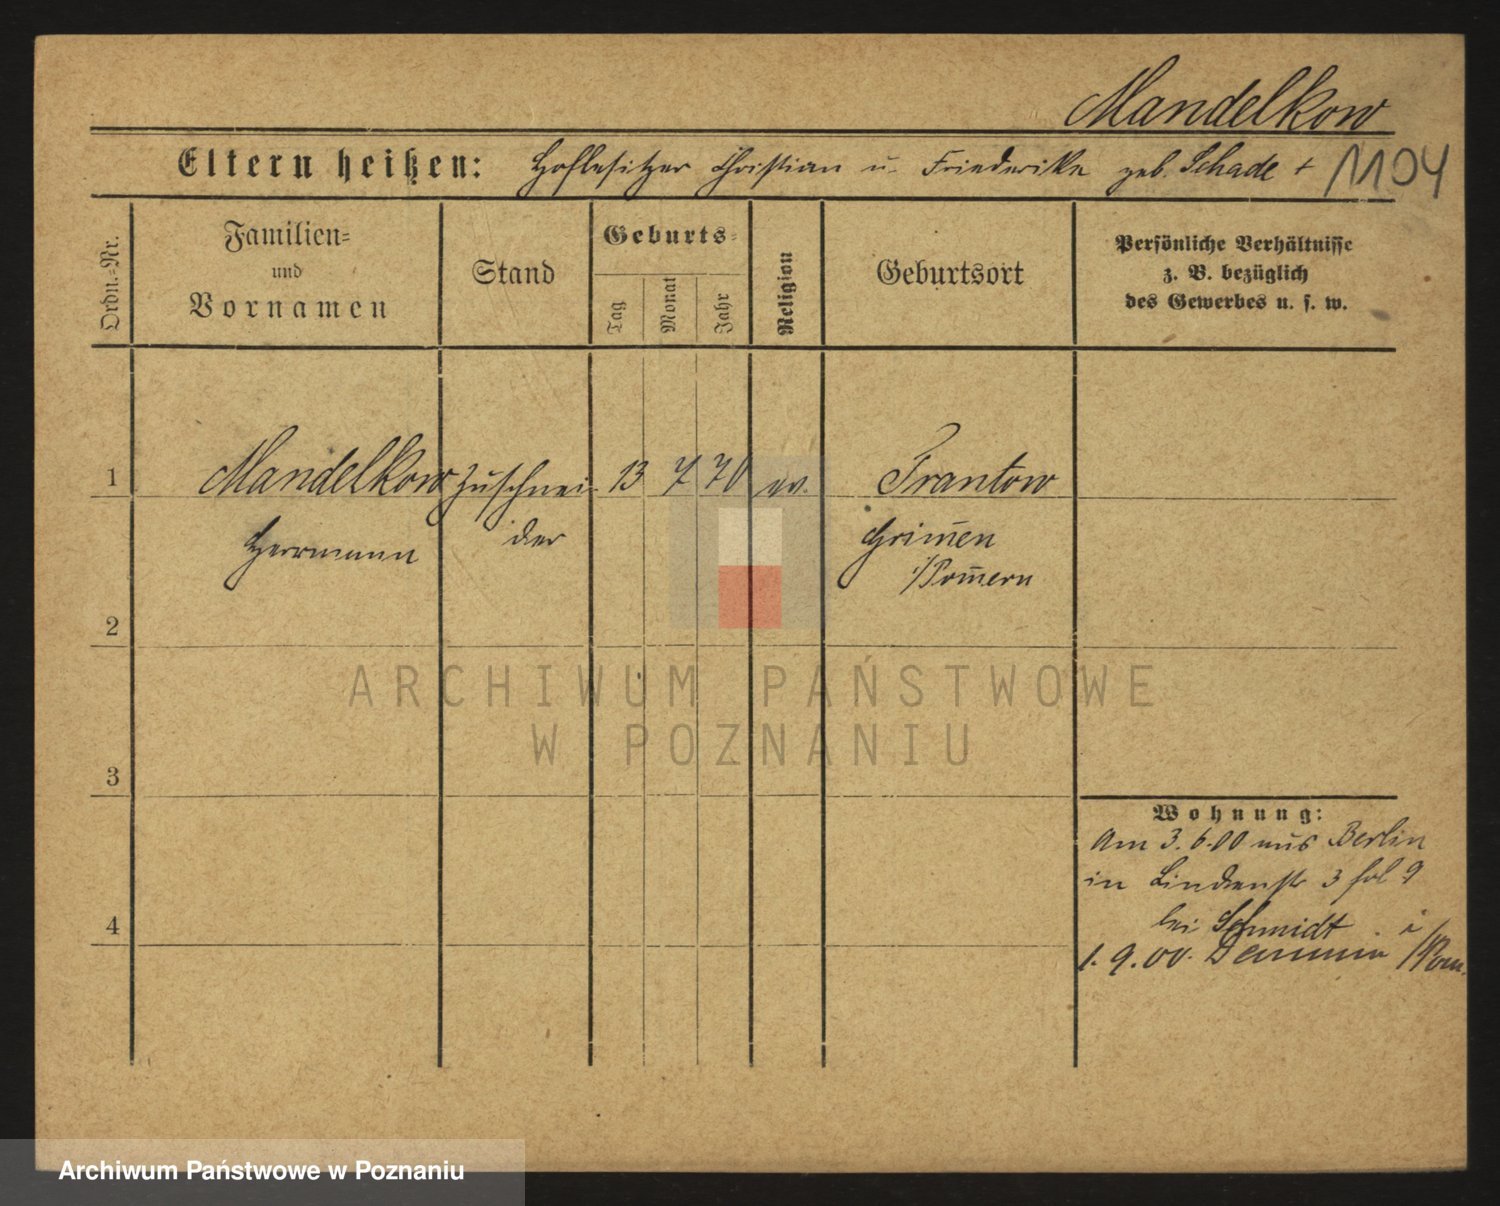 Mandelkow
Eltern heißen: Hofbesitzer Christian u. Friederike geb. Schade + 1104
Ordn.-Nr.
Familien-
und
Vornamen
Stand
Geburts-
Tag
Monat
Jahr
Religion
Geburtsort
Persönliche Verhältnisse
z. B. bezüglich
des Gewerbes u. s. w.
1 Mandelkow Zuschnei- 13 7 70 ev. Trantow
Herrmann der Grim̄en
i/Pom̄ern
2
3
4
Wohnung:
Am 3.6.00 aus Berlin
in Lindenstr 3 hol 9
bei Schmidt
1.9.00. Demmin i/Pom.
ARCHIWUM PAŃSTWOWE
W POZNANIU
Archiwum Państwowe w Poznaniu